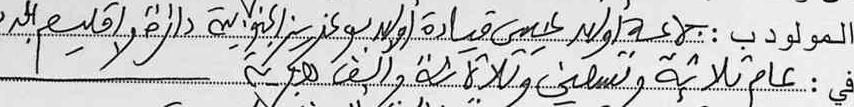 المولود ب : جماعة أولاد عيسى قيادة أولاد بوعزيز الجنوبية دائرة واقليم الجديدة
في : عام ثلاثة وتسعين وثلاثمائة وألف هجرية